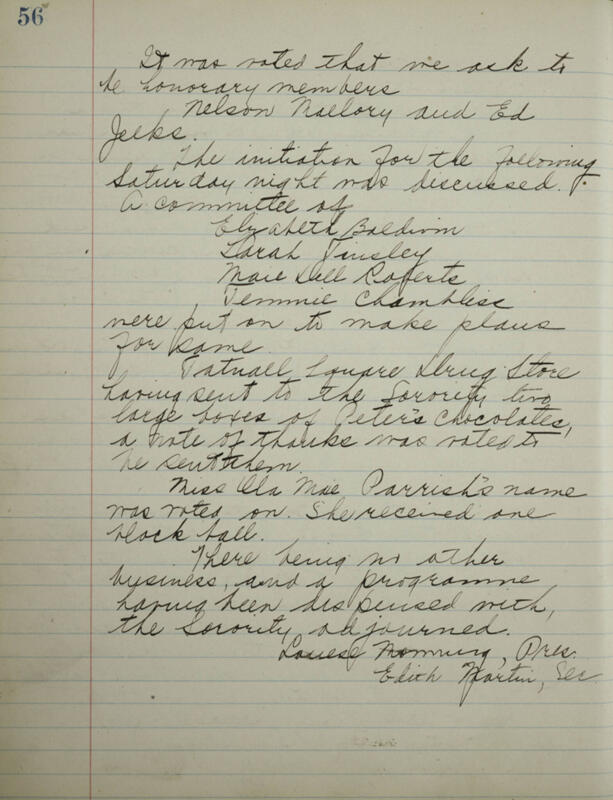 56
It was voted that we ask to
be honorary members
Nelson Mallory and Ed
Jelks.
The initiation for the following
Saturday night was discussed.
A committee of
Elizabeth Baldwin
Sarah Tinsley
Maie Dell Roberts
Temmie Chambliss
were put on to make plans
for same
Tatnall Square Drug Store
having sent to the Sorority two
large boxes of Peter's Chocolates,
a note of thanks was voted to
be sent them.
Miss Ola Mae Parrish's name
was voted on. She received one
black ball.
There being no other
business, and a programme
having been dispensed with,
the Sorority adjourned.
Louese Monning, Pres.
Edith Martin, Sec